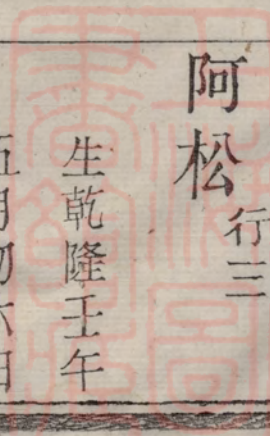 阿松行三
生乾隆壬午
五月初六日